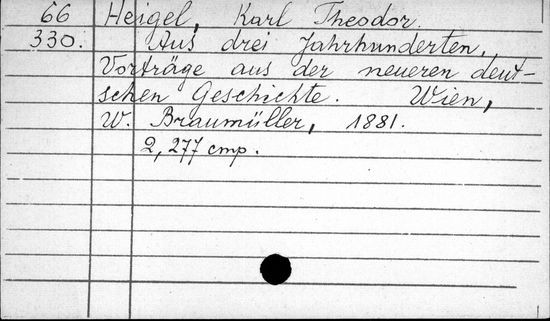 66 Heigel, Karl Theodor.
330. Aus drei Jahrhunderten,
Vorträge aus der neueren deut-
schen Geschichte. Wien,
W. Braumüller, 1881.
2, 277 cmp.